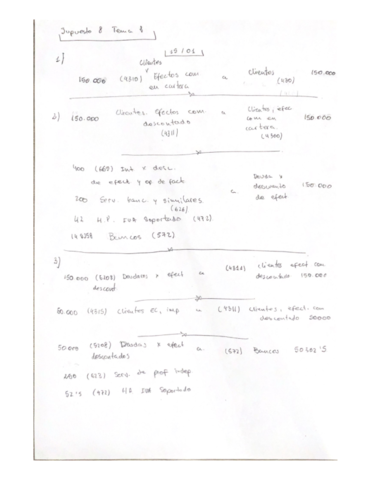 Supuesto 8 Tema 8
1)
Clientes
150.000 (4310) Efectos com a Clientes 150.000
en cartera (430)
2) 150.000 Clientes, Efectos com. a Clientes, efec 150.000
descontado com en
(4311) cartera
(4310)
400 (665) Int x desc.
de efect y op de fact
a 150.000
200 Serv. banc y similares
(626)
42 H.P. IVA Soportado (472)
Bancos (572)
3)
150.000 (5208) Deudas x efect a (4311) Clients efect com
descont descontados 150.000
50.000 (4315) Clientes ef, imp a (4311) Clientes, efect. com
descontado
50.000 (5208) Deudas x efect a (572) Bancos
descontados
250 (623) Serv de prof indep
52'5 (472) IVA Soportado